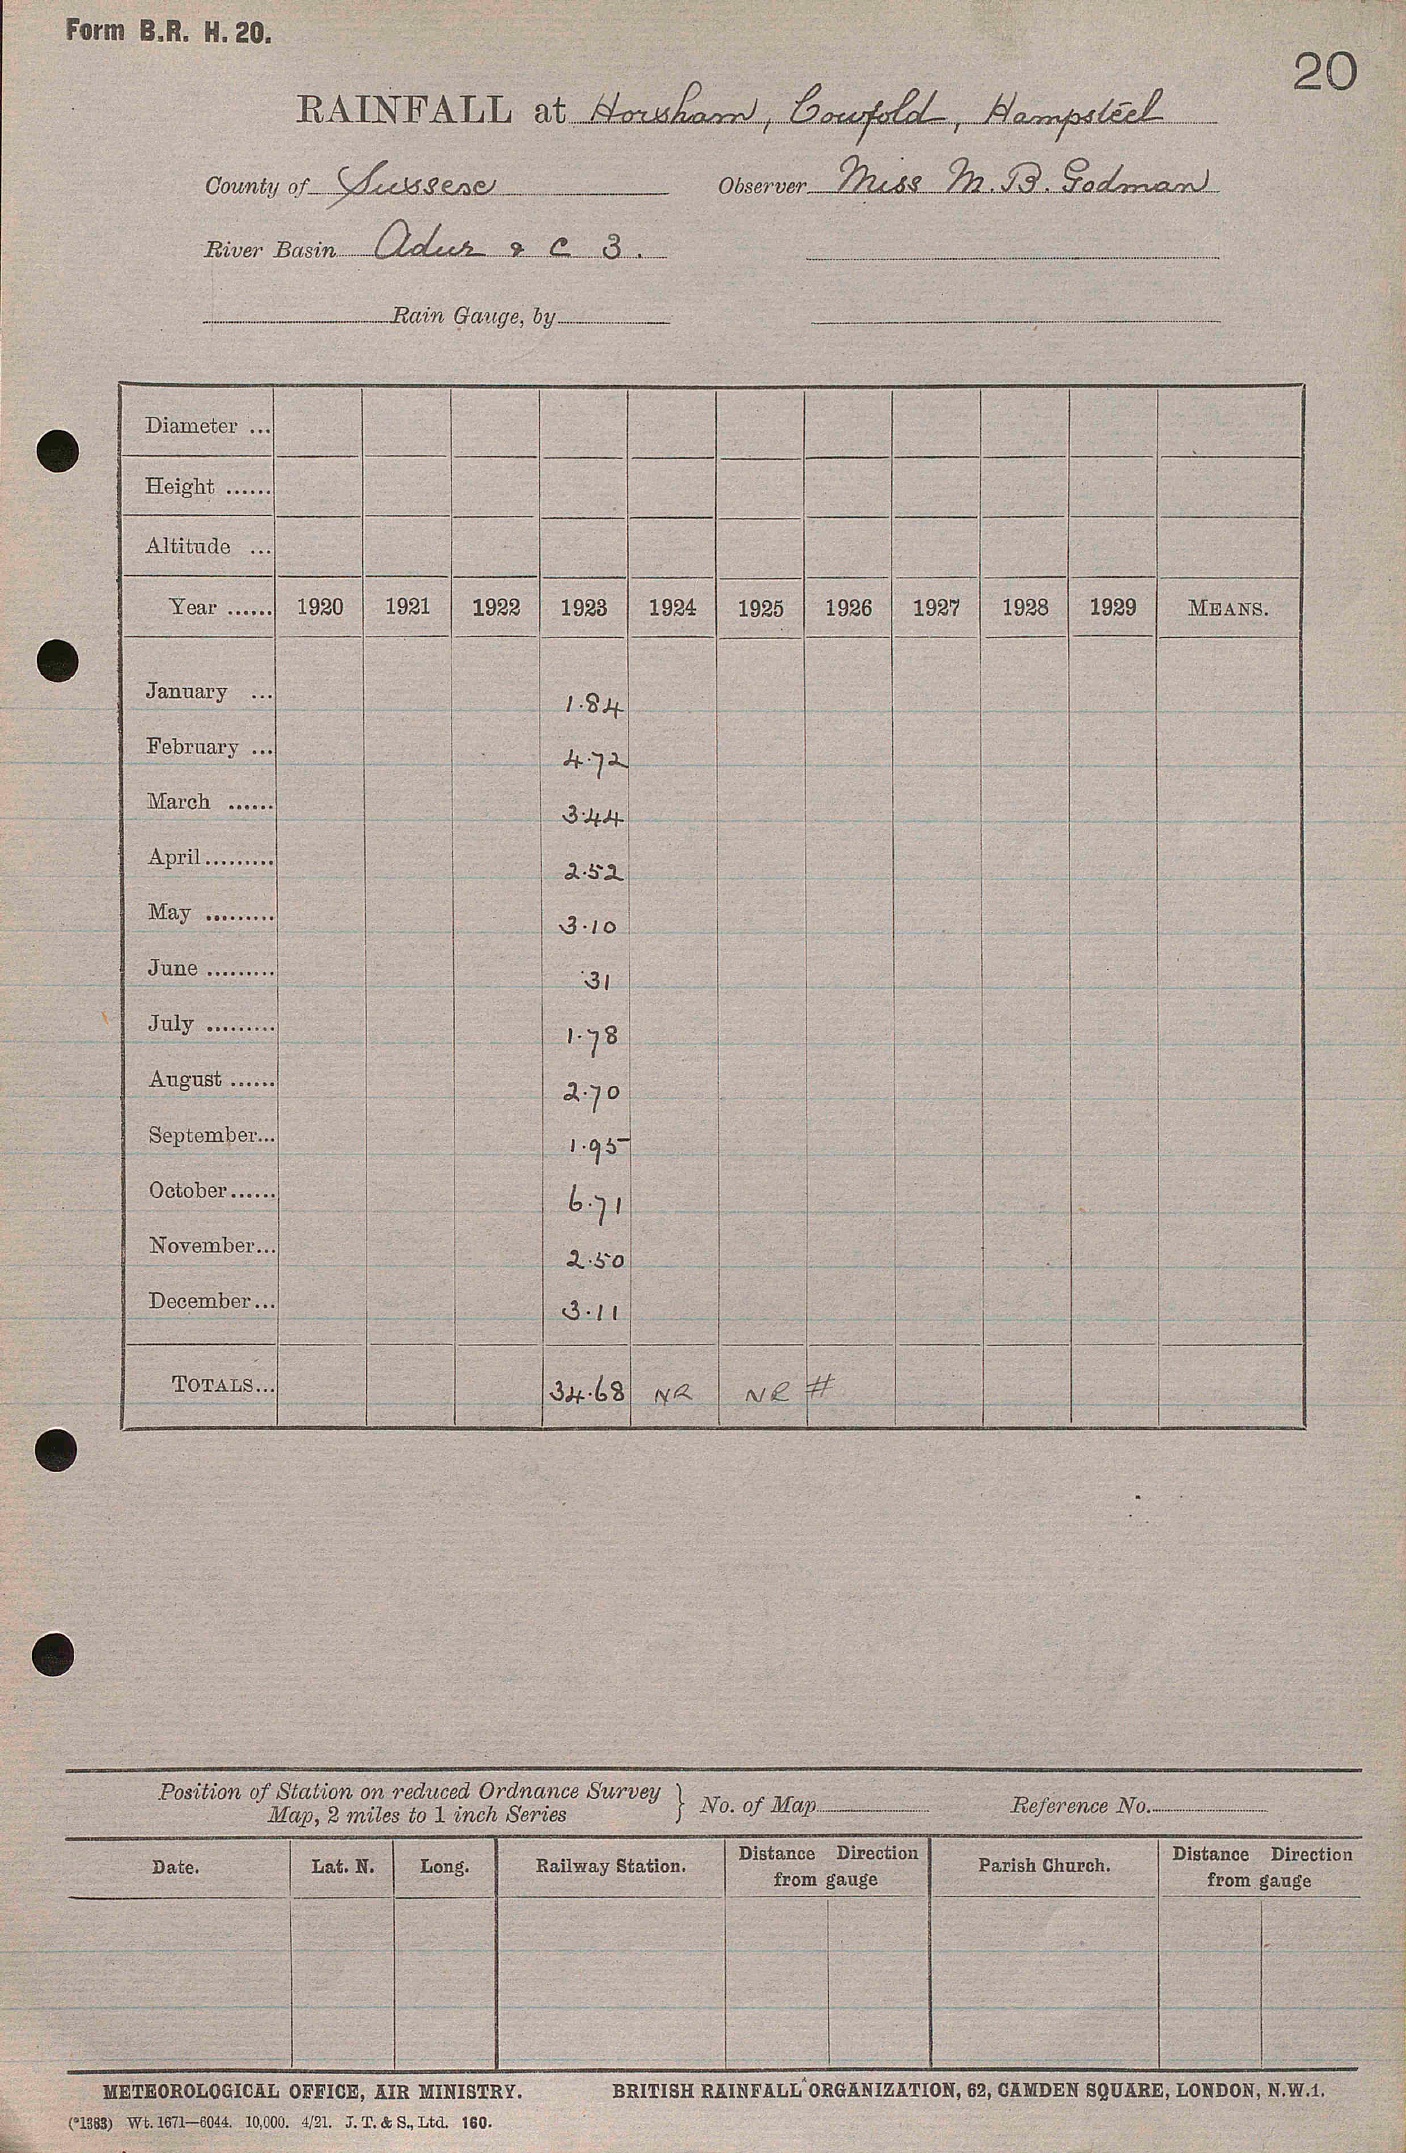 Form B.R. H. 20.
20
RAINFALL at Horsham, Cowfold, Hampsteel
County of Sussex Observer Miss M. B. Godman
River Basin Adur & C 3.
Rain Gauge, by
Diameter ...
Height ......
Altitude ...
Year ...... 1920 1921 1922 1923 1924 1925 1926 1927 1928 1929 MEANS.
January ... 1.84
February ... 4.72
March ...... 3.44
April ......... 2.52
May ......... 3.10
June ......... .31
July ......... 1.78
August ...... 2.70
September... 1.95
October...... 6.71
November... 2.50
December... 3.11
TOTALS... 34.68 NR NR #
Position of Station on reduced Ordnance Survey
Map, 2 miles to 1 inch Series } No. of Map Reference No.
Date. Lat. N. Long. Railway Station. Distance Direction from gauge Parish Church. Distance Direction from gauge
METEOROLOGICAL OFFICE, AIR MINISTRY. BRITISH RAINFALL ORGANIZATION, 62, CAMDEN SQUARE, LONDON, N.W.1.
(*1383) Wt. 1671—6044. 10,000. 4/21. J. T. & S., Ltd. 160.